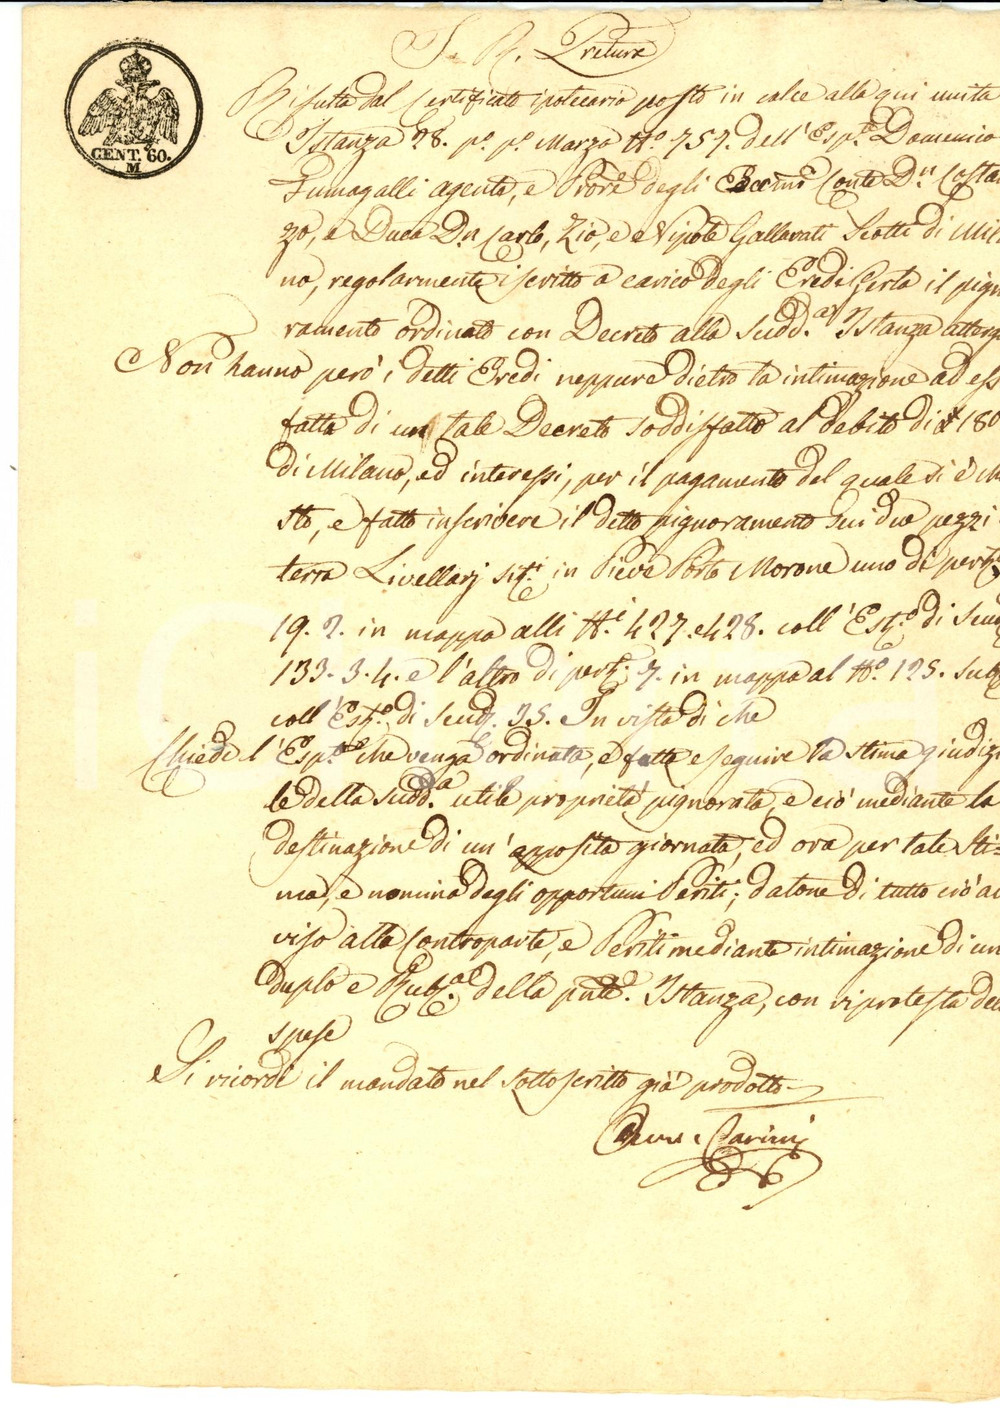 I. R. Pretura
CENT. 60.
M
Risulta dal Certificato ipotecario posto in calce alla qui unita
Istanza 28. p.º p.º Marzo Nº 757. dell' Esp.e Domenico
Fumagalli agente, e Proc.re degli Conte Dn Costan
zo, e Duca Dn Carlo, Zio, e Nipote Gallarati Scotti di Mila
no, regolarmente iscritto a carico degli Eredi il pigno
ramento ordinato con Decreto alla sudd.a Istanza attergato
Non hanno però i detti Eredi neppure dietro la intimazione ad ess
fatta di un tale Decreto soddisfatto al debito di £ 180
di Milano, ed interessi, per il pagamento del quale si è
sto, e fatto inscrivere il detto pignoramento sui due pezzi
terra Livellarj sit.i in Pieve Porto Morone uno di pert.
19. 2. in mappa alli N.i 427. e 428. coll' Est.o di Scud
133. 3. 4. e l'altro di pert. 7. in mappa al Nº 125. sub
coll' Est.o di scud. 35. In vista di che
Chiede l' Esp.te che venga ordinata, e fatta eseguire la stima giudizia
le della sudd.a utile proprietà pignorata, e ciò mediante la
destinazione di un' apposita giornata, ed ora per tale sti-
ma, e nomina degli opportuni Periti; datone di tutto ciò av
viso alla Controparte, e Periti mediante intimazione di un
duplo e Rub.a della pnte. Istanza, con riprotesta delle
spese
Si ricorda il mandato nel sottoscritto già prodotto